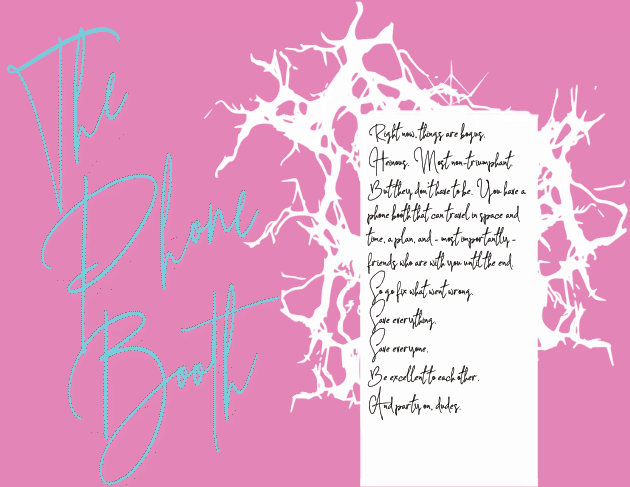 The
Phone
Booth
Right now, things are bogus.
Heinous. Most non-triumphant.
But they don't have to be. You have a
phone booth that can travel in space and
time, a plan, and - most importantly -
friends who are with you until the end.
So go fix what went wrong.
Save everything.
Save everyone.
Be excellent to each other.
And party on, dudes.